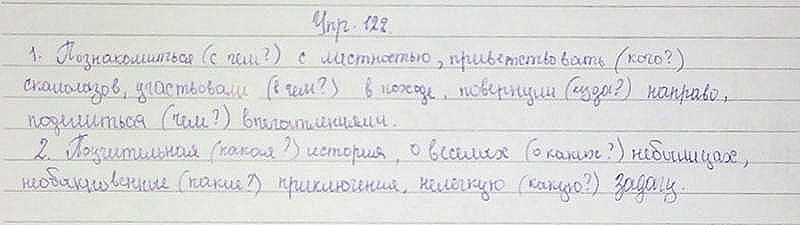 Упр. 122.
1. Познакомиться (с чем?) с местностью, приветствовать (кого?)
скалолазов, участвовали (в чем?) в походе, повернули (куда?) направо,
поделиться (чем?) впечатлениями.
2. Поучительная (какая?) история, о веселых (о каких?) небылицах,
необыкновенные (какие?) приключения, нелегкую (какую?) задачу.